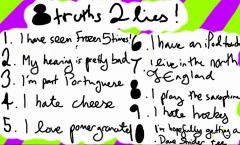 8 truths 2 lies!
1. I have seen Frozen 5 times!
2. My hearing is pretty bad
3. I'm part Portuguese
4. I hate cheese
5. I love pomegranate
6. I have an iPod touch
7 I live in the north
of England
8 I play the saxophone
9 I hate hockey
10 I'm hopefully getting a
Dave Strider tee